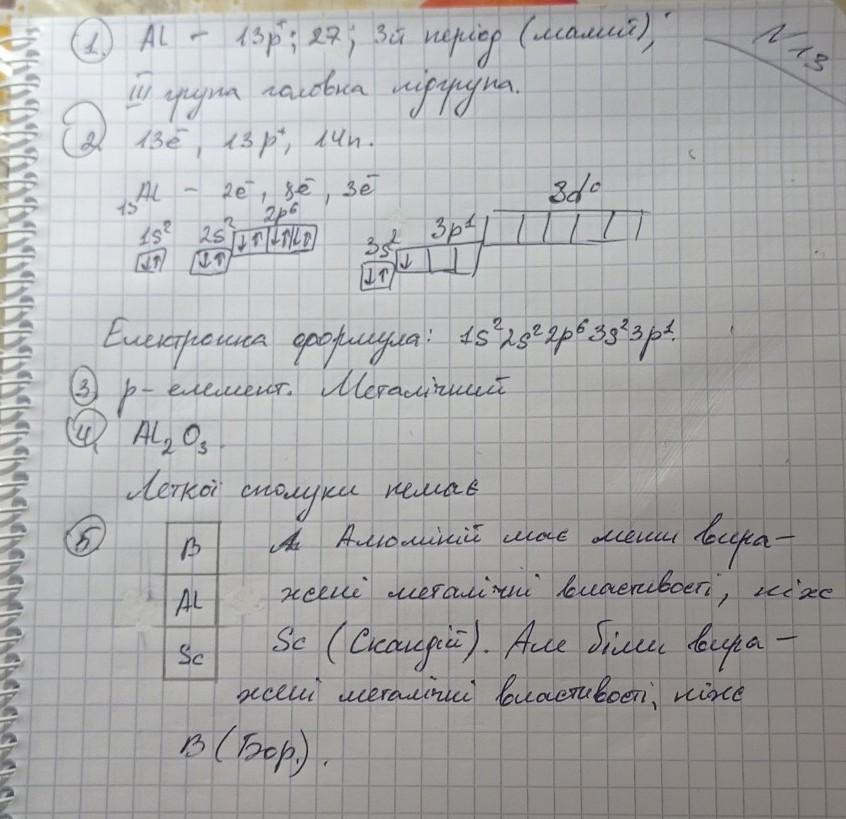 1. Al – 13p⁺; 27; 3й період (малий),
N 13
III група головна підгрупа.
2 13ē, 13p⁺, 14n.
₁₃Al – 2ē, 8ē, 3ē
1s² 2s² 2p⁶ 3s² 3p¹ 3d⁰
↓↑ ↓↑ ↓↑ ↓↑ ↓↑ ↓↑ ↓
Електронна формула: 1s²2s²2p⁶3s²3p¹.
3 p – елемент. Металічний
4 Al₂O₃.
Леткої сполуки немає
5 B Алюміній має менш вира–
Al жені металічні властивості, ніж
Sc Sc (Скандій). Але більш вира–
жені металічні властивості, ніж
B (Бор.).